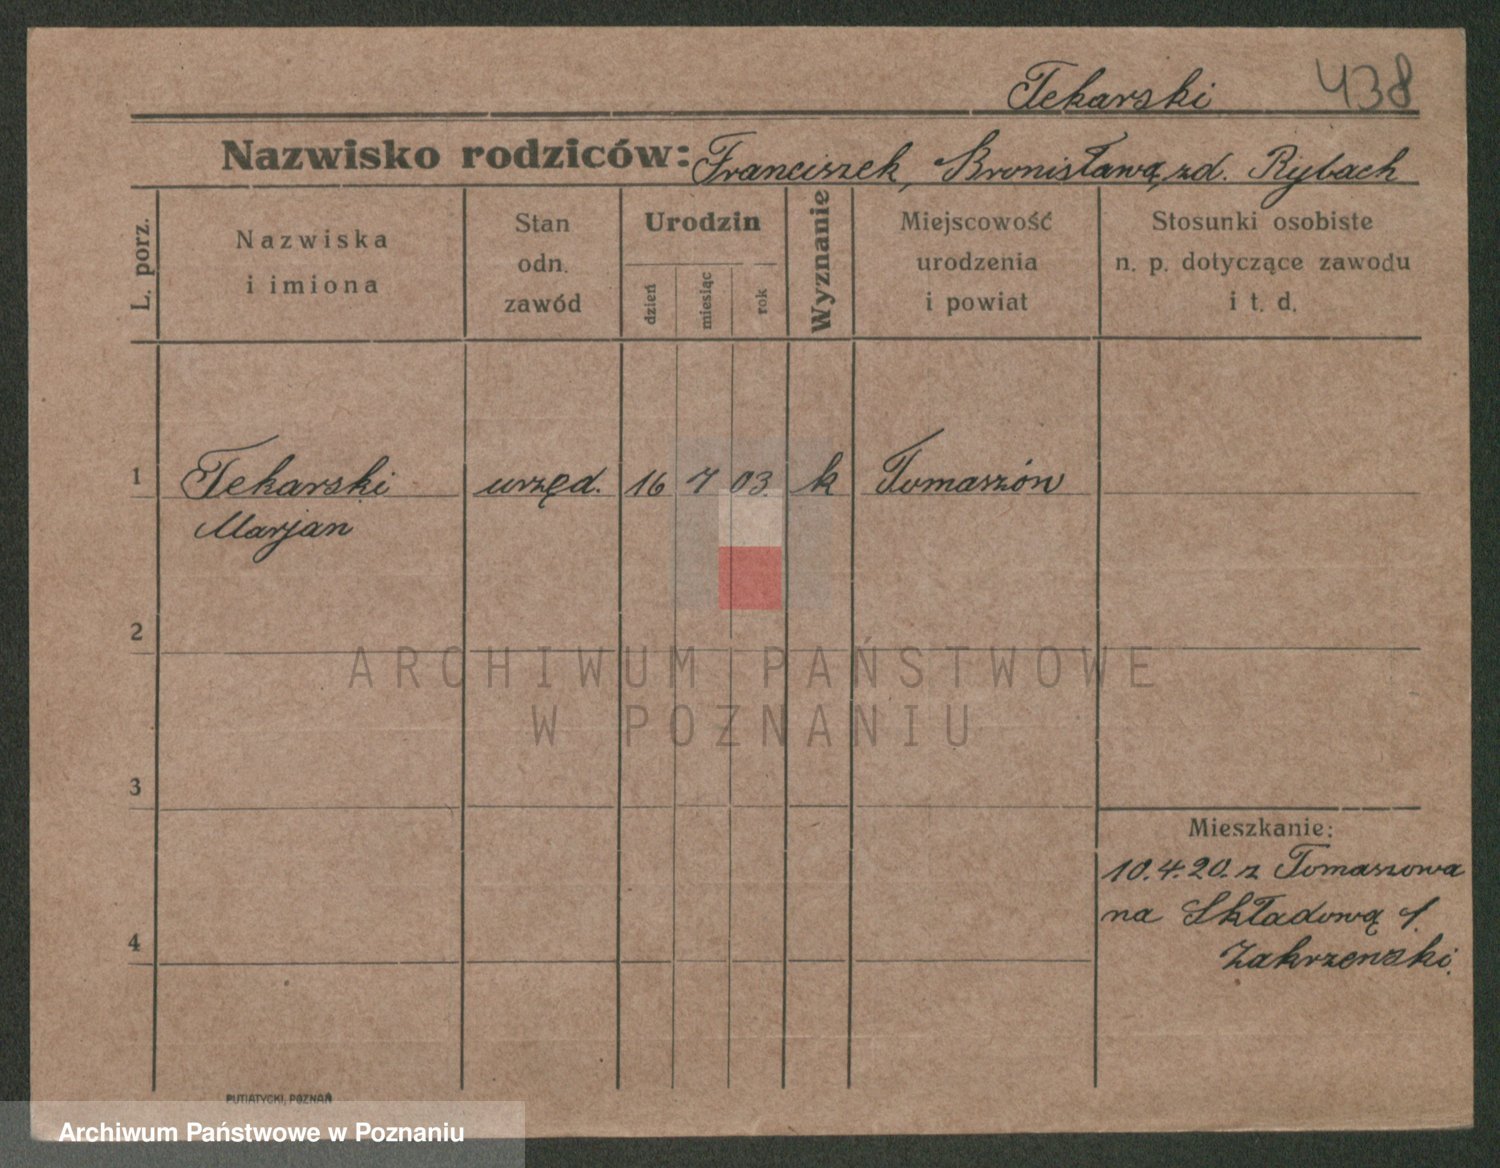 Tekarski 438
Nazwisko rodziców: Franciszek, Bronisława, zd. Rybach
L. porz.
Nazwiska
i imiona
Stan
odn.
zawód
Urodzin
dzień
miesiąc
rok
Wyznanie
Miejscowość
urodzenia
i powiat
Stosunki osobiste
n. p. dotyczące zawodu
i t. d.
1 Tekarski urzęd. 16 7 03. k Tomaszów
Marjan
2
ARCHIWUM PAŃSTWOWE
W POZNANIU
3
Mieszkanie:
10.4.20. z Tomaszowa
na Składową 1.
4
Zakrzewski.
PUTIATYCKI, POZNAŃ
Archiwum Państwowe w Poznaniu